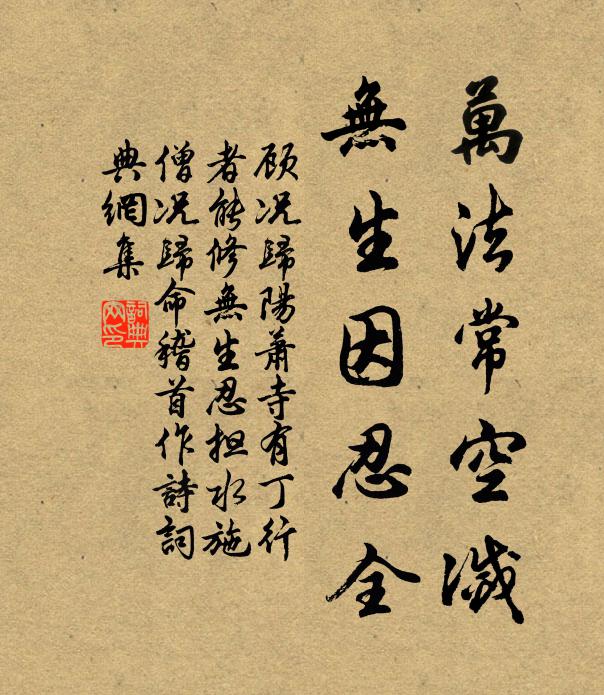 萬法常空滅
無生因忍全
顾况歸陽蕭寺有丁行
者能修無生忍担水施
僧况歸命稽首作詩詞
典網集
詞典
网印